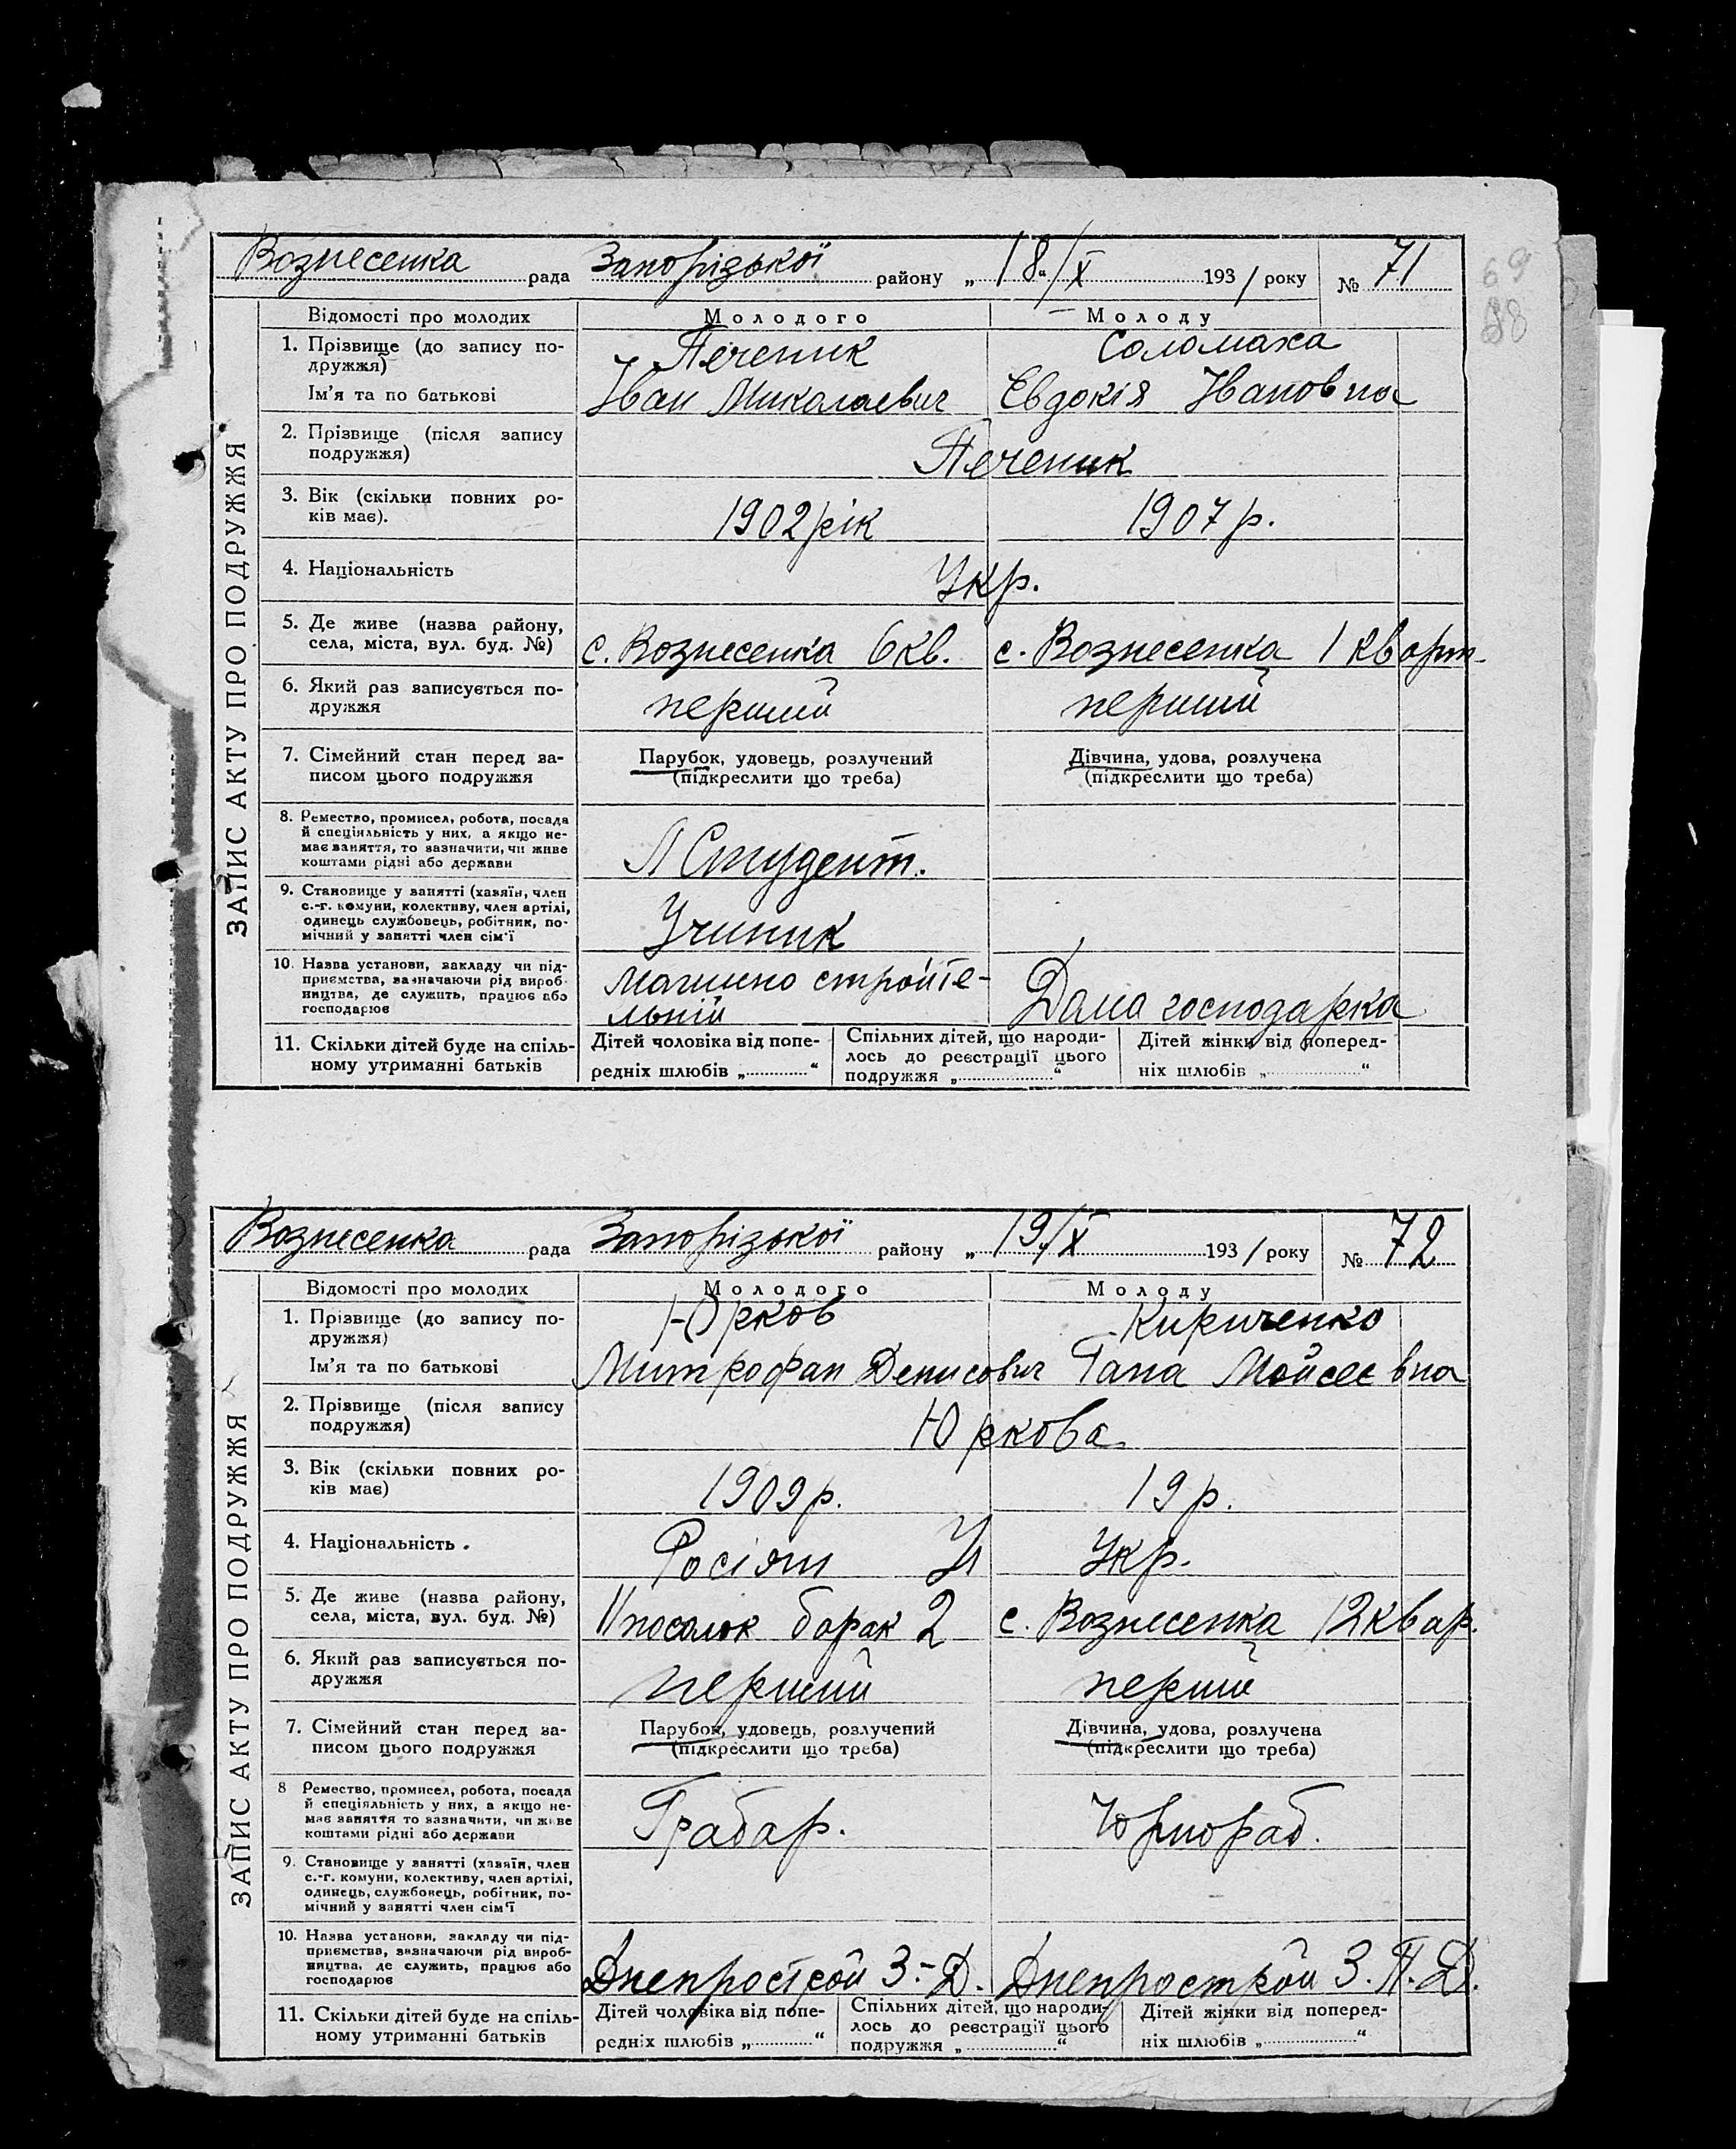 Вознесенка рада Запорізької району „ 18/X 1931 року № 71
69
ЗАПИС АКТУ ПРО ПОДРУЖЖЯ
Відомості про молодих Молодого Молоду
1. Прізвище (до запису по- Печеник Соломаха
дружжя)
Ім'я та по батькові Іван Миколаевич Євдокія Івановна
2. Прізвище (після запису
подружжя) Печеник
3. Вік (скільки повних ро-
ків має). 1902 рік 1907 р.
4. Національність Укр.
5. Де живе (назва району,
села, міста, вул. буд. №) с. Вознесенка 6 кв. с. Вознесенка 1 кварт.
6. Який раз записується по-
дружжя перший перший
7. Сімейний стан перед за- Парубок, удовець, розлучений Дівчина, удова, розлучена
писом цього подружжя (підкреслити що треба) (підкреслити що треба)
8. Ремество, промисел, робота, посада
й спеціяльність у них, а якщо не-
має заняття, то зазначити, чи живе
коштами рідні або держави Студент.
9. Становище у занятті (хазяїн, член
с.-г. комуни, колективу, член артілі,
одинець службовець, робітник, по-
мічний у занятті член сім'ї Учиник
10. Назва установи, закладу чи під-
приємства, зазначаючи рід вироб- Машино стройте-
ництва, де служить, працює або
господарює льній Дома господарка
11. Скільки дітей буде на спіль- Дітей чоловіка від попе- Спільних дітей, що народи- Дітей жінки від поперед-
ному утриманні батьків редніх шлюбів „ “ лось до реєстрації цього ніх шлюбів „ “
подружжя „ “
Вознесенка рада Запорізької району „ 19/X 1931 року № 72
ЗАПИС АКТУ ПРО ПОДРУЖЖЯ
Відомості про молодих Молодого Молоду
1. Прізвище (до запису по- Юрков Кириченко
дружжя)
Ім'я та по батькові Митрофан Денисович Гана Мойсеєвна
2. Прізвище (після запису
подружжя) Юркова
3. Вік (скільки повних ро-
ків має) 1909 р. 19 р.
4. Національність Росіян Укр.
5. Де живе (назва району,
села, міста, вул. буд. №) 11 посольок барак 2 с. Вознесенка 12 квар.
6. Який раз записується по-
дружжя перший перши
7. Сімейний стан перед за- Парубок, удовець, розлучений Дівчина, удова, розлучена
писом цього подружжя (підкреслити що треба) (підкреслити що треба)
8 Ремество, промисел, робота, посада
й спеціяльність у них, а якщо не-
має заняття то зазначити, чи живе
коштами рідні або держави Грабар. Чорнораб.
9. Становище у занятті (хазяїн, член
с.-г. комуни, колективу, член артілі,
одинець, службовець, робітник, по-
мічний у занятті член сім'ї
10. Назва установи, закладу чи під-
приємства, зазначаючи рід вироб-
ництва, де служить, працює або
господарює Днепрострой З.-Д. Днепрострой З. П. Д.
11. Скільки дітей буде на спіль- Дітей чоловіка від попе- Спільних дітей, що народи- Дітей жінки від поперед-
ному утриманні батьків редніх шлюбів „ “ лось до реєстрації цього ніх шлюбів „ “
подружжя „ “